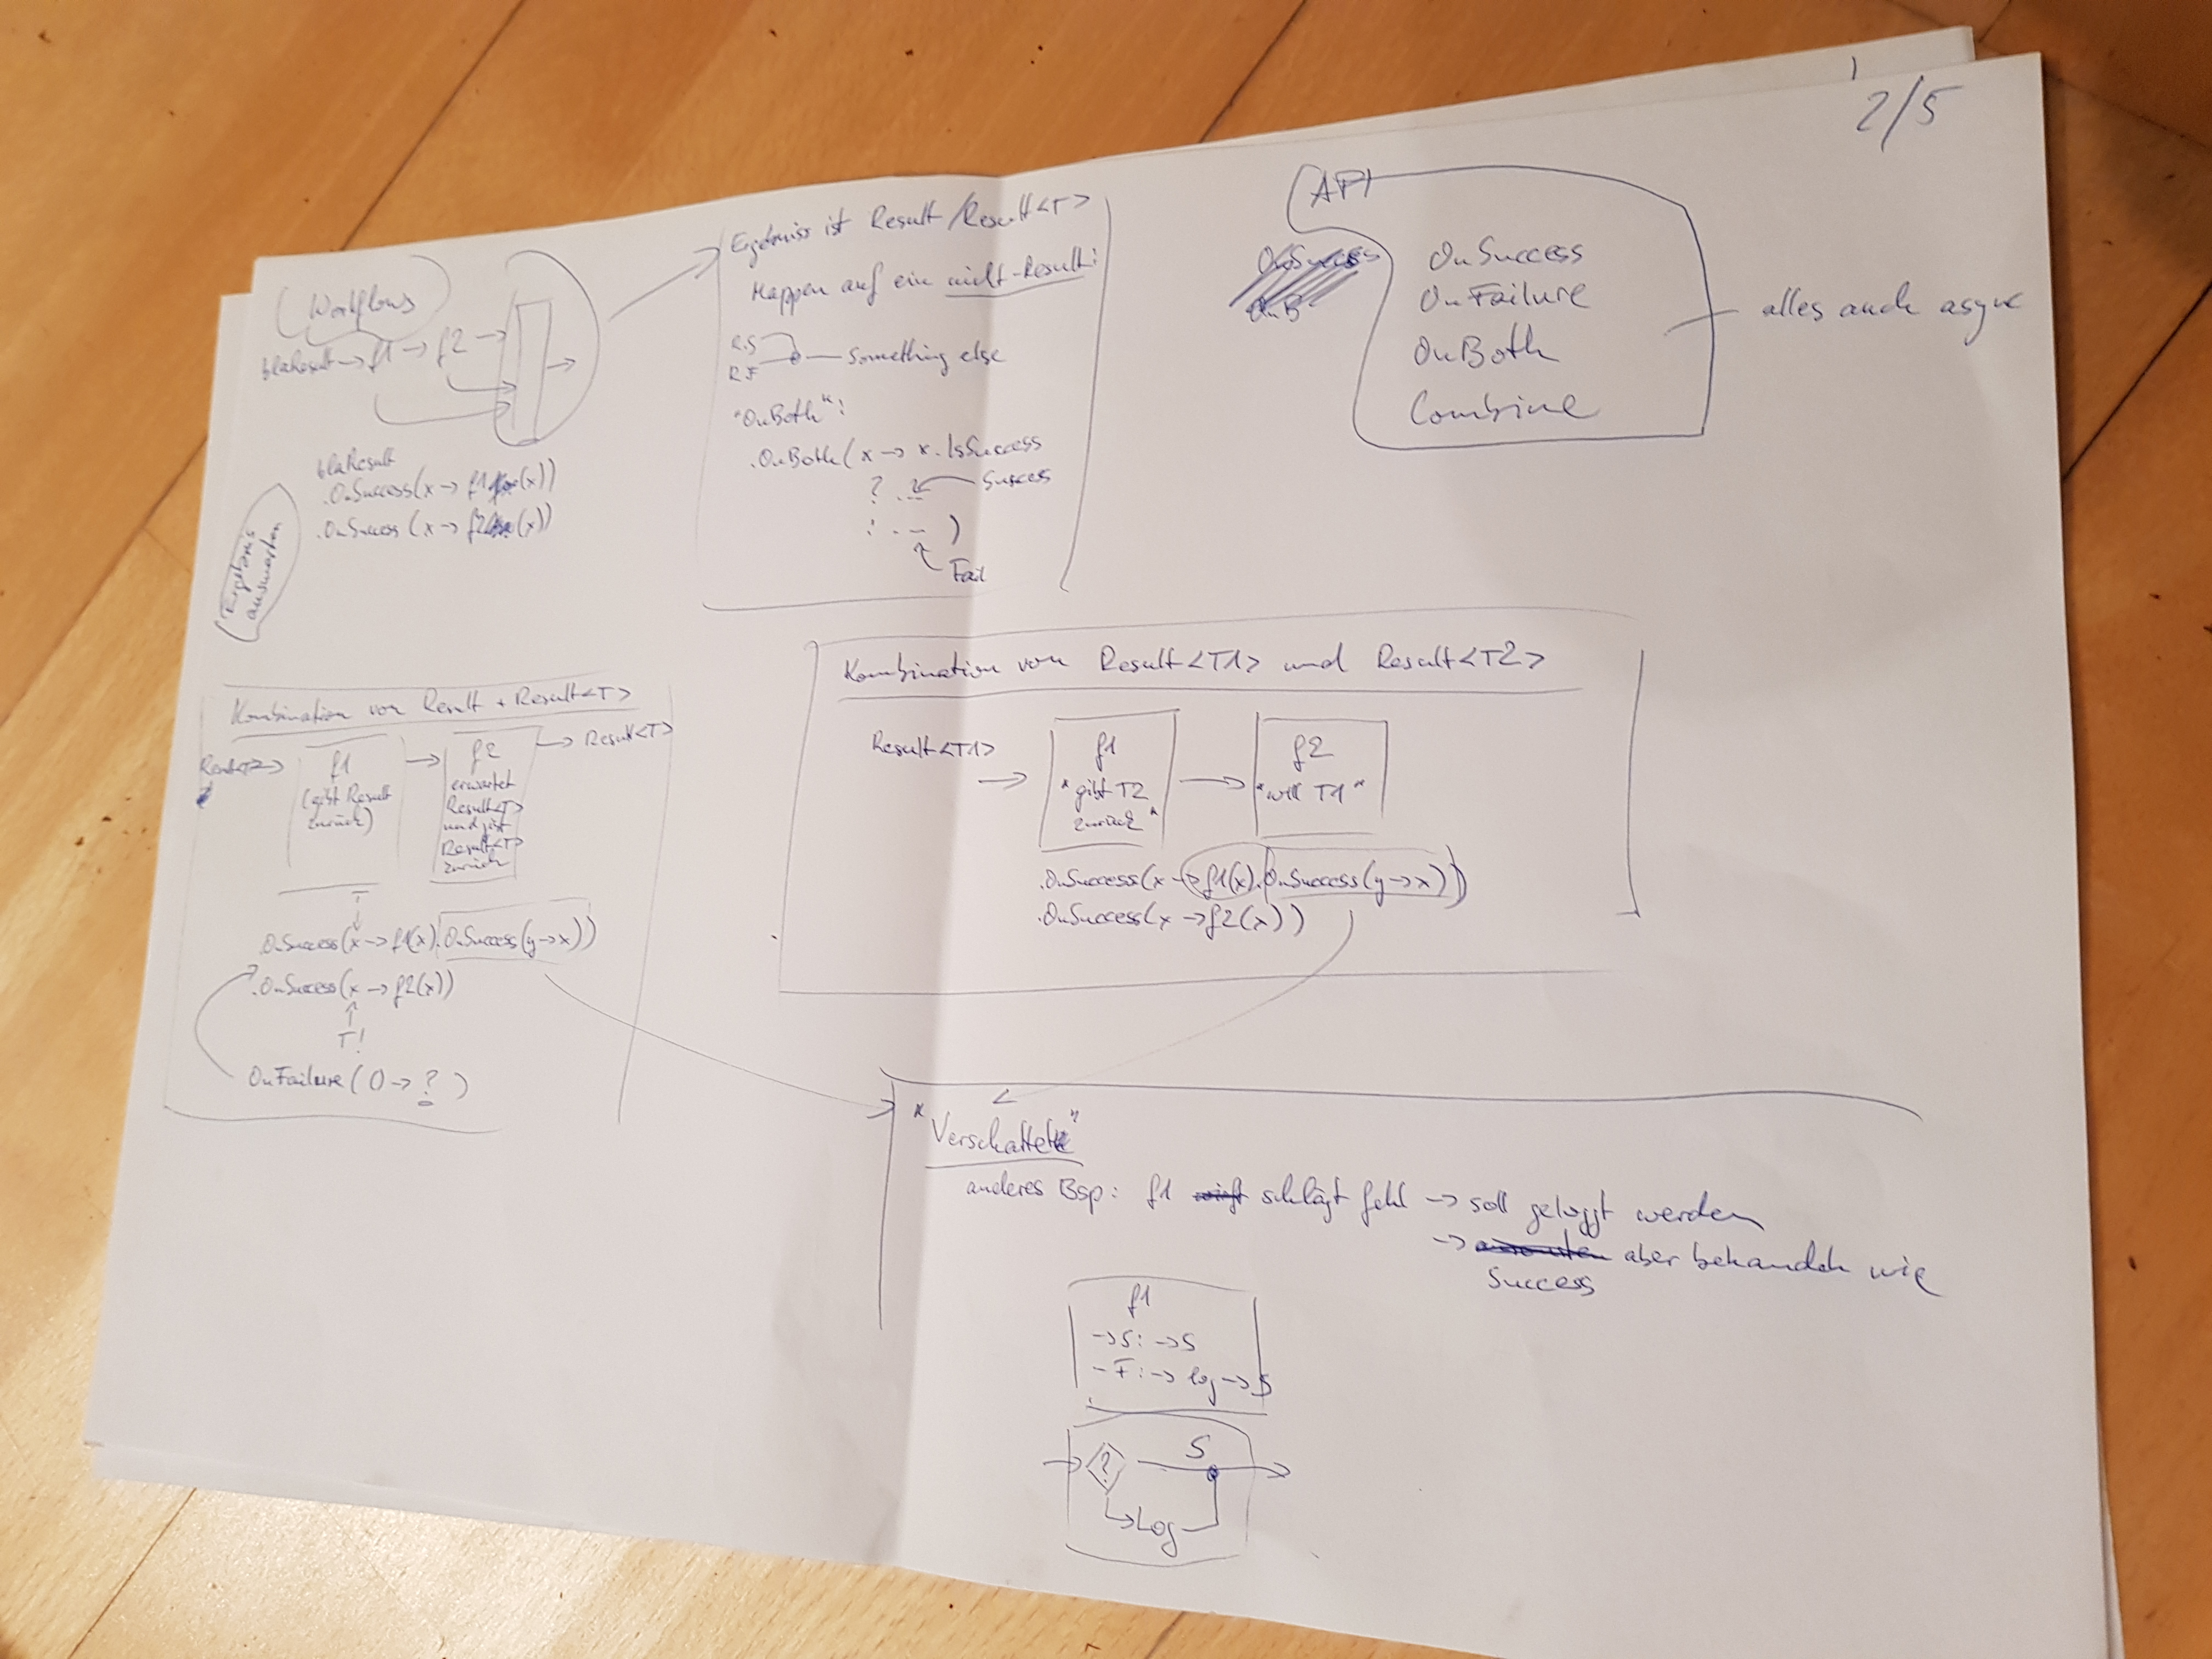 2/5
Workflows
blaResult → f1 → f2 →
blaResult
.OnSuccess(x → f1(x))
.OnSuccess(x → f2(x))
Ergebnis
auswerten
Ergebniss ist Result/Result<T>
Mappen auf ein nicht-Result:
R.S
R.F
Something else
"OnBoth":
.OnBoth(x → x.IsSuccess
? . --
Success
: . -- )
Fail
API
OnSuccess
OnB
OnSuccess
OnFailure
OnBoth
Combine
alles auch async
Kombination von Result + Result<T>
f1
(gibt Result
zurück)
f2
erwartet
Result<T>
und gibt
Result<T>
zurück
→ Result<T>
.OnSuccess(x → f1(x).OnSuccess(y → x))
.OnSuccess(x → f2(x))
T!
OnFailure(() → ?)
Kombination von Result<T1> und Result<T2>
Result<T1>
f1
"gibt T2
zurück"
f2
"will T1"
.OnSuccess(x → f1(x).OnSuccess(y → x))
.OnSuccess(x → f2(x))
"Verschachtelt"
anderes Bsp: f1 wirft schlägt fehl → soll geloggt werden
→ ansonsten aber behandeln wie
Success
f1
→ S: → S
- F: → log → S
?
S
Log